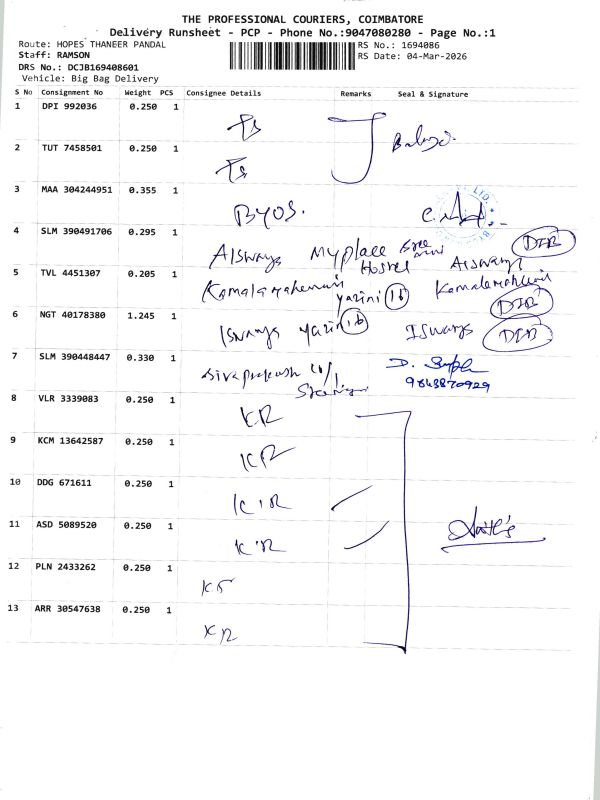 THE PROFESSIONAL COURIERS, COIMBATORE
Delivery Runsheet - PCP - Phone No.:9047080280 - Page No.:1
Route: HOPES THANEER PANDAL
RS No.: 1694086
Staff: RAMSON
RS Date: 04-Mar-2026
DRS No.: DCJB169408601
Vehicle: Big Bag Delivery
S No Consignment No Weight PCS Consignee Details Remarks Seal & Signature
1 DPI 992036 0.250 1
2 TUT 7458501 0.250 1
3 MAA 304244951 0.355 1 BYOS.
4 SLM 390491706 0.295 1 Aiswarya Myplace Hostel Aiswarya
5 TVL 4451307 0.205 1 Yazini 16
6 NGT 40178380 1.245 1 Iswarya Yazini 16 Iswarya
7 SLM 390448447 0.330 1 Sivaprakash
9843870929
8 VLR 3339083 0.250 1 KR
9 KCM 13642587 0.250 1 KR
10 DDG 671611 0.250 1 KR
11 ASD 5089520 0.250 1 KR
12 PLN 2433262 0.250 1
13 ARR 30547638 0.250 1 KR